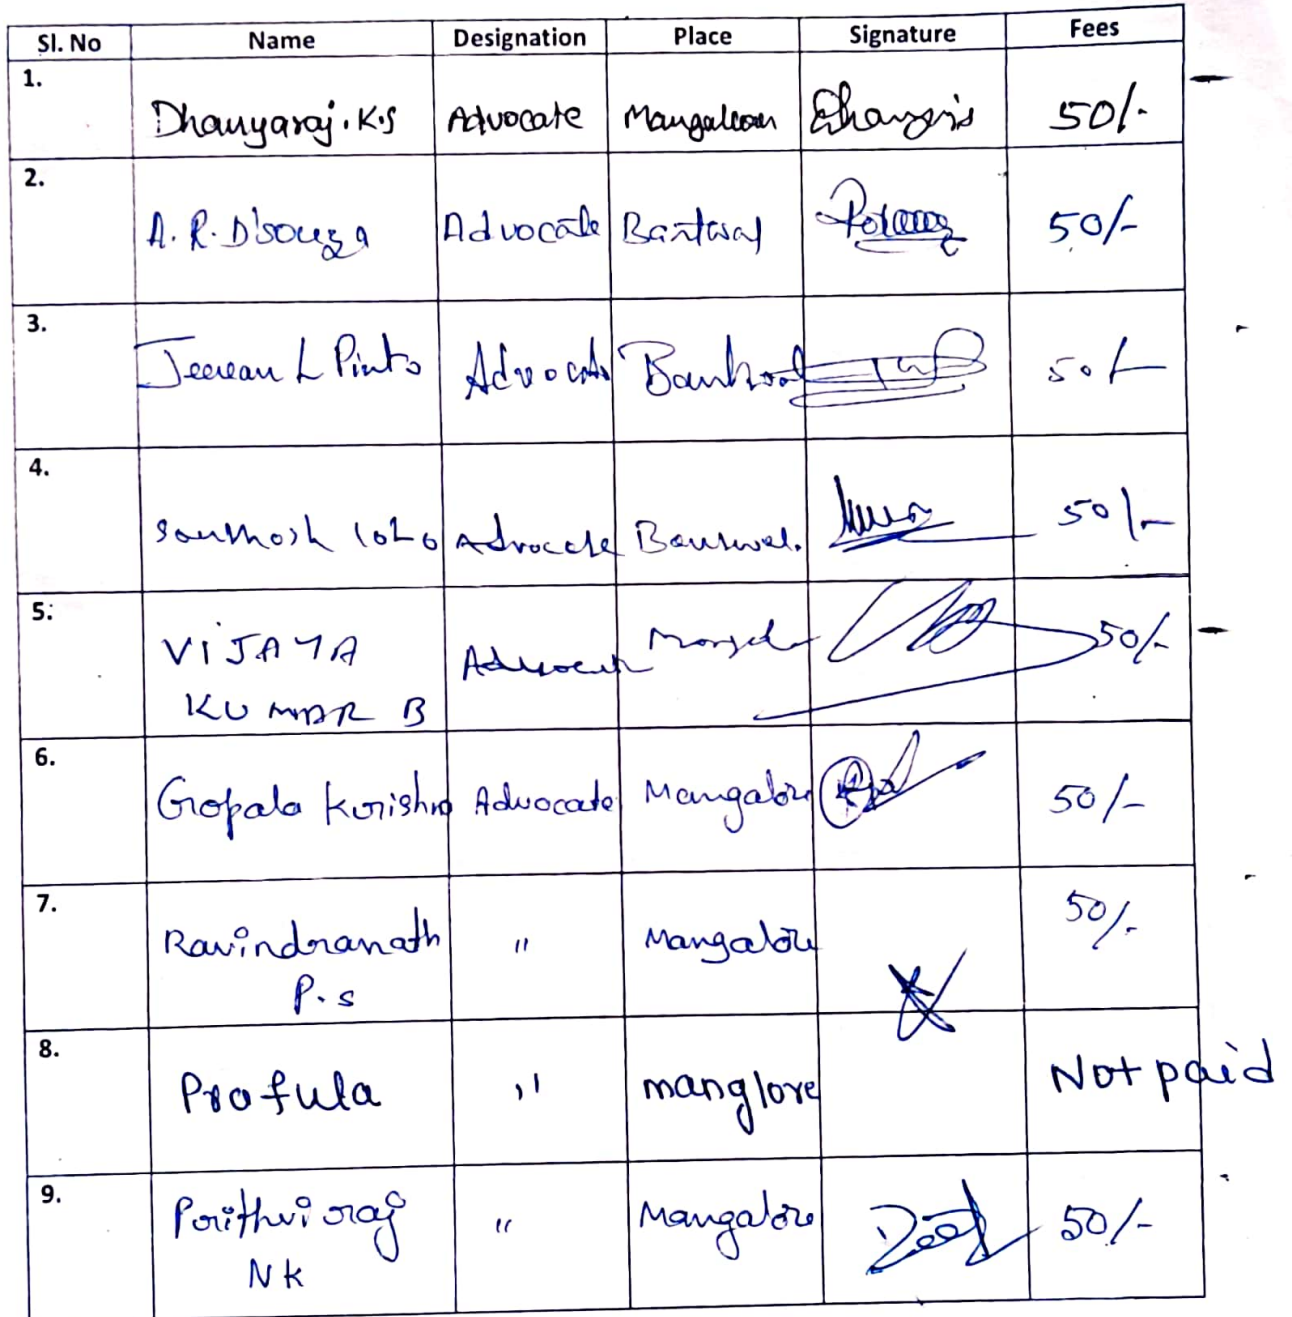 Sl. No Name Designation Place Signature Fees
1. Dhanyaraj.K.S Advocate 50/-
2. A. R. D'souza Advocate Bantwal 50/-
3. L Pinto Advocate 50/-
4. Santhosh Advocate 50/-
5. VIJAYA Advocate 50/-
KUMAR B
6. Gopala Krishna Advocate Mangalore 50/-
7. Ravindranath " Mangalore 50/-
P.s
8. Profula " manglore Not paid
9. Prithviraj " Mangalore 50/-
NK